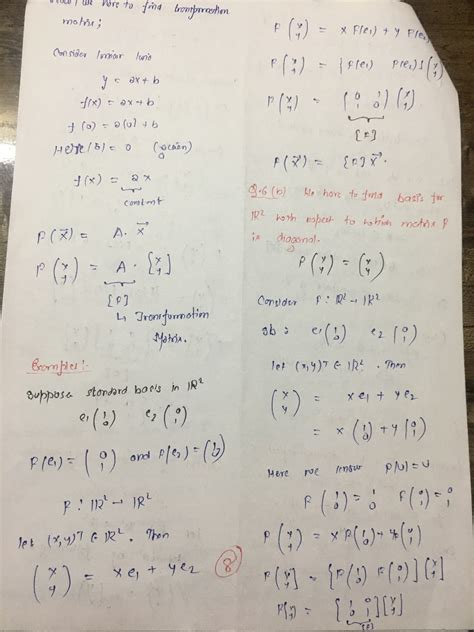 we have to find transformation
matrix;
Consider linear line
y = ax + b
f(x) = ax + b
f(0) = a(0) + b
Here (b) = 0
f(x) = ax
constant
P(x⃗) = A · x⃗
P(x y) = A · [x y]
[P]
↳ Transformation
Matrix.
Examples:
Suppose standard basis in ℝ²
e₁(1 0) e₂(0 1)
P(e₁) = (0 1) and P(e₂) = (1 0)
P : ℝ² → ℝ²
let (x,y)ᵀ ∈ ℝ². Then
(x y) = xe₁ + ye₂
8
P(x y) = x P(e₁) + y P(e₂)
P(x y) = {P(e₁) P(e₂)}(x y)
P(x y) = (0 1 1 0)(x y)
[P]
P(x⃗) = [P]x⃗.
Q.6(b) We have to find basis for
ℝ² with respect to which matrix P
is diagonal.
P(x y) = (x y)
Consider P : ℝ² → ℝ²
e₁(1 0) e₂(0 1)
let (x,y)ᵀ ∈ ℝ². Then
(x y) = xe₁ + ye₂
= x(1 0) + y(0 1)
Here we know P(v) = v
P(1 0) = 1 0 P(0 1) = 0 1
P(x y) = x P(1 0) + y P(0 1)
P[x y] = [P(1 0) P(0 1)][x y]
P[x y] = [1 0 0 1][x y]
[P]